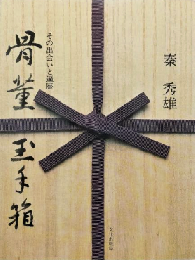 骨董玉手箱
その出会いと遍歴
秦 秀雄